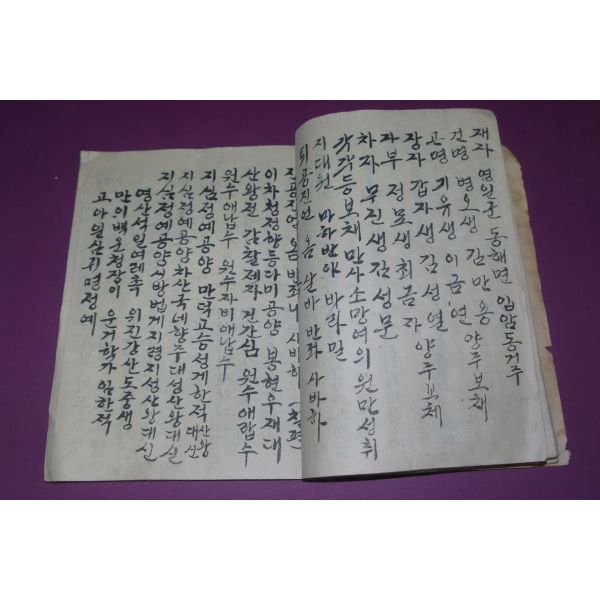 재자 영일군 동해면 입암동거주
건명 병오생 김만용 양주보체
곤명 기유생 이금연
장자 갑자생 김성열
자부 정묘생 최금자 양주보체
차자 무진생 김성문
각각등보체 만사소망여의원만성취
지대원 마하반야 바라밀
퇴공진언 옴 살바 반자 사바하
진공진언 옴 반자 사바하
이차청정향등다미공양 봉헌우재대
산왕전 감찰제자 건간심 원수애랍수
원수애납수 원수자비애납수
지심정예공양 만덕고승성계한적 산왕대신
지심정예공양 차산국네향주대성산왕대신
지심정예공양 시방법계지령지성산왕대신
영산석일여래촉 위진강산도중생
만의백운청장이 운거학가 임한적
고아일심귀명정예